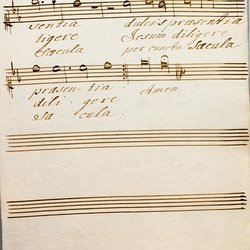 sentia dulcis præsentia
ligere Jesum diligere
Sæcula per cuncta Sæcula
præsen- tia. Amen
dili- gere
Sæ cula.